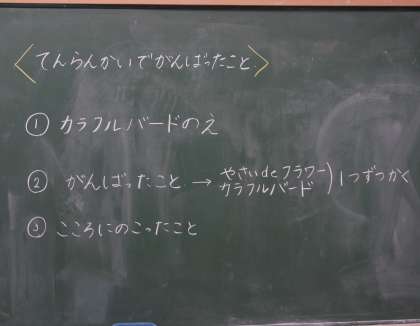 〈てんらんかいでがんばったこと〉
① カラフルバードのえ
② がんばったこと → やさいdeフラワー
カラフルバード ) 1つずつかく
③ こころにのこったこと